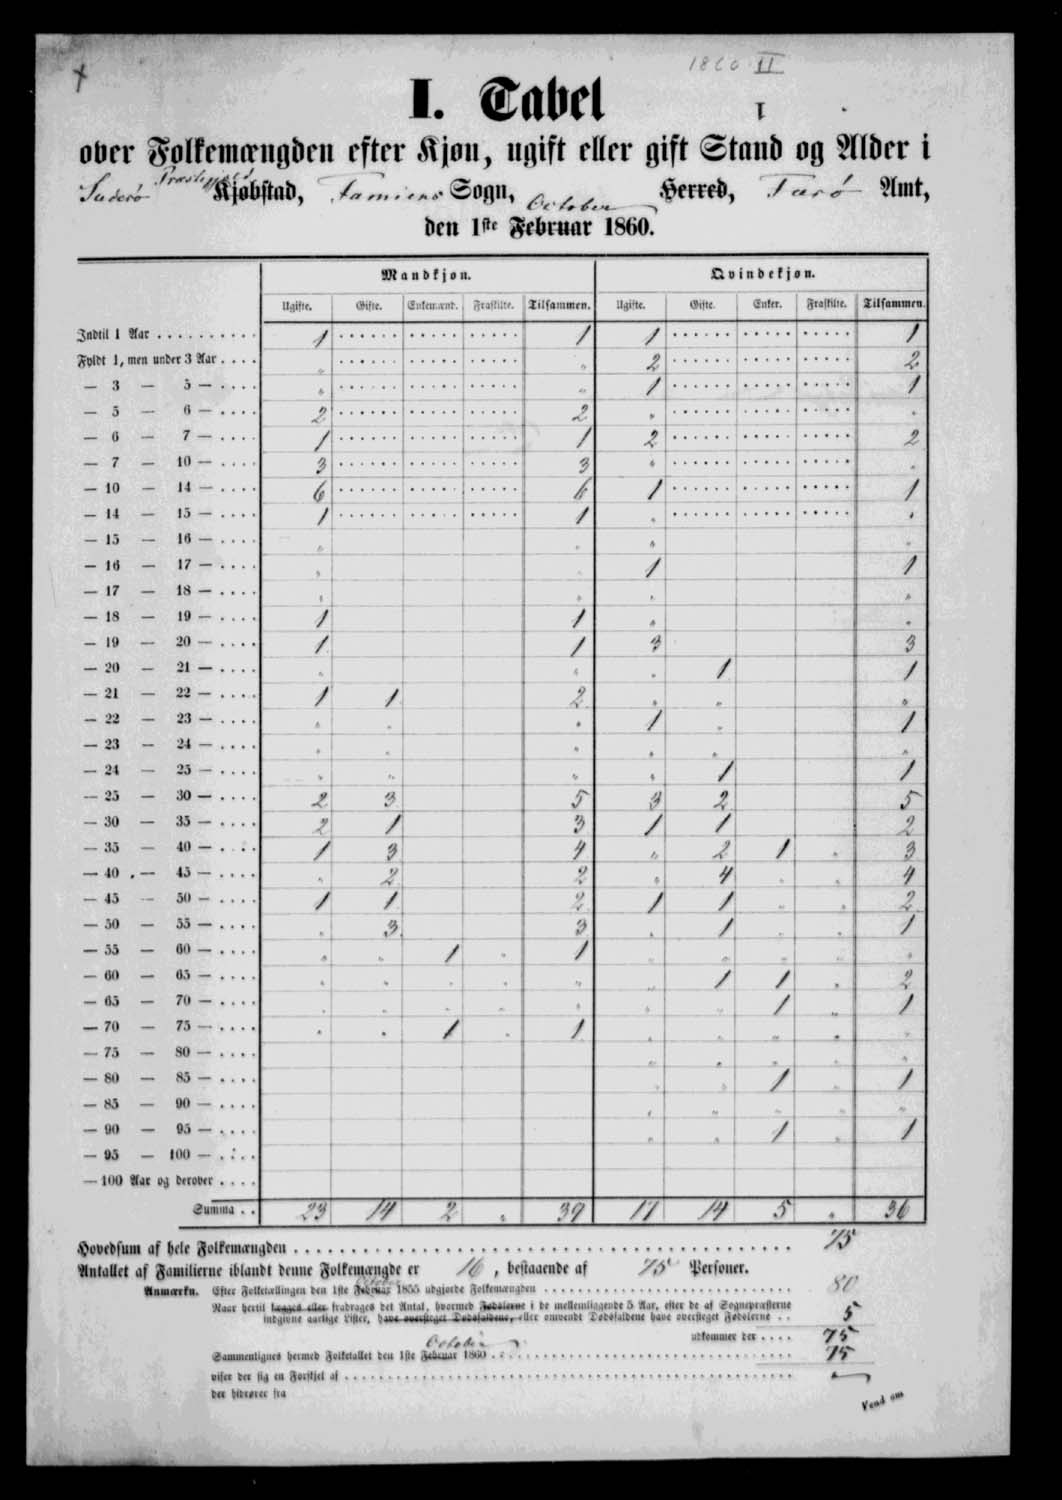 1860 II
I. Tabel
I
over Folkemængden efter Kjøn, ugift eller gift Stand og Alder i
Suderø Præstegjeld Kjøbstad, Famiens Sogn, Herred, Farø Amt,
October
den 1ste Februar 1860.
Mandkjøn. Qvindekjøn.
Ugifte. Gifte. Enkemænd. Fraskilte. Tilsammen. Ugifte. Gifte. Enker. Fraskilte. Tilsammen.
Indtil 1 Aar . . . . 1 1 1 1
Fyldt 1, men under 3 Aar . . . . " " 2 2
— 3 — 5 — . . . . " " 1 1
— 5 — 6 — . . . . 2 2 " "
— 6 — 7 — . . . . 1 1 2 2
— 7 — 10 — . . . . 3 3 " "
— 10 — 14 — . . . . 6 6 1 1
— 14 — 15 — . . . . 1 1 " "
— 15 — 16 — . . . . " " " "
— 16 — 17 — . . . . " 1 1
— 17 — 18 — . . . . " " " "
— 18 — 19 — . . . . 1 1 " "
— 19 — 20 — . . . . 1 1 3 3
— 20 — 21 — . . . . " " " 1 1
— 21 — 22 — . . . . 1 1 2 " " "
— 22 — 23 — . . . . " " " 1 " 1
— 23 — 24 — . . . . " " " " " "
— 24 — 25 — . . . . " " " " 1 1
— 25 — 30 — . . . . 2 3 5 3 2 5
— 30 — 35 — . . . . 2 1 3 1 1 2
— 35 — 40 — . . . . 1 3 4 " 2 1 " 3
— 40 — 45 — . . . . " 2 2 " 4 " " 4
— 45 — 50 — . . . . 1 1 2 1 1 " " 2
— 50 — 55 — . . . . " 3 3 " 1 " " 1
— 55 — 60 — . . . . " " 1 " 1 " " " " "
— 60 — 65 — . . . . " " " " " " 1 1 " 2
— 65 — 70 — . . . . " " " " " " " 1 " 1
— 70 — 75 — . . . . " " 1 " 1 " " " " "
— 75 — 80 — . . . . " " " " "
— 80 — 85 — . . . . " " 1 " 1
— 85 — 90 — . . . . " " " " "
— 90 — 95 — . . . . " " 1 " 1
— 95 — 100 — . . . .
— 100 Aar og derover . . . .
Summa . . 23 14 2 " 39 17 14 5 " 36
Hovedsum af hele Folkemængden . . . . 75
Antallet af Familierne iblandt denne Folkemængde er 16, bestaaende af 75 Personer.
October
Anmærkn. Efter Folketællingen den 1ste Februar 1855 udgjorde Folkemængden . . . . 80
Naar hertil lægges eller fradrages det Antal, hvormed Fødslerne i de mellemliggende 5 Aar, efter de af Sognepræsterne
indgivne aarlige Lister, have oversteget Dødsfaldene, eller omvendt Dødsfaldene have oversteget Fødslerne . . 5
udkommer der . . . . 75
October
Sammenlignes hermed Folketallet den 1ste Februar 1860 . . . . 75
viser der sig en Forskjel af . . . .
der hidrører fra
Vend om